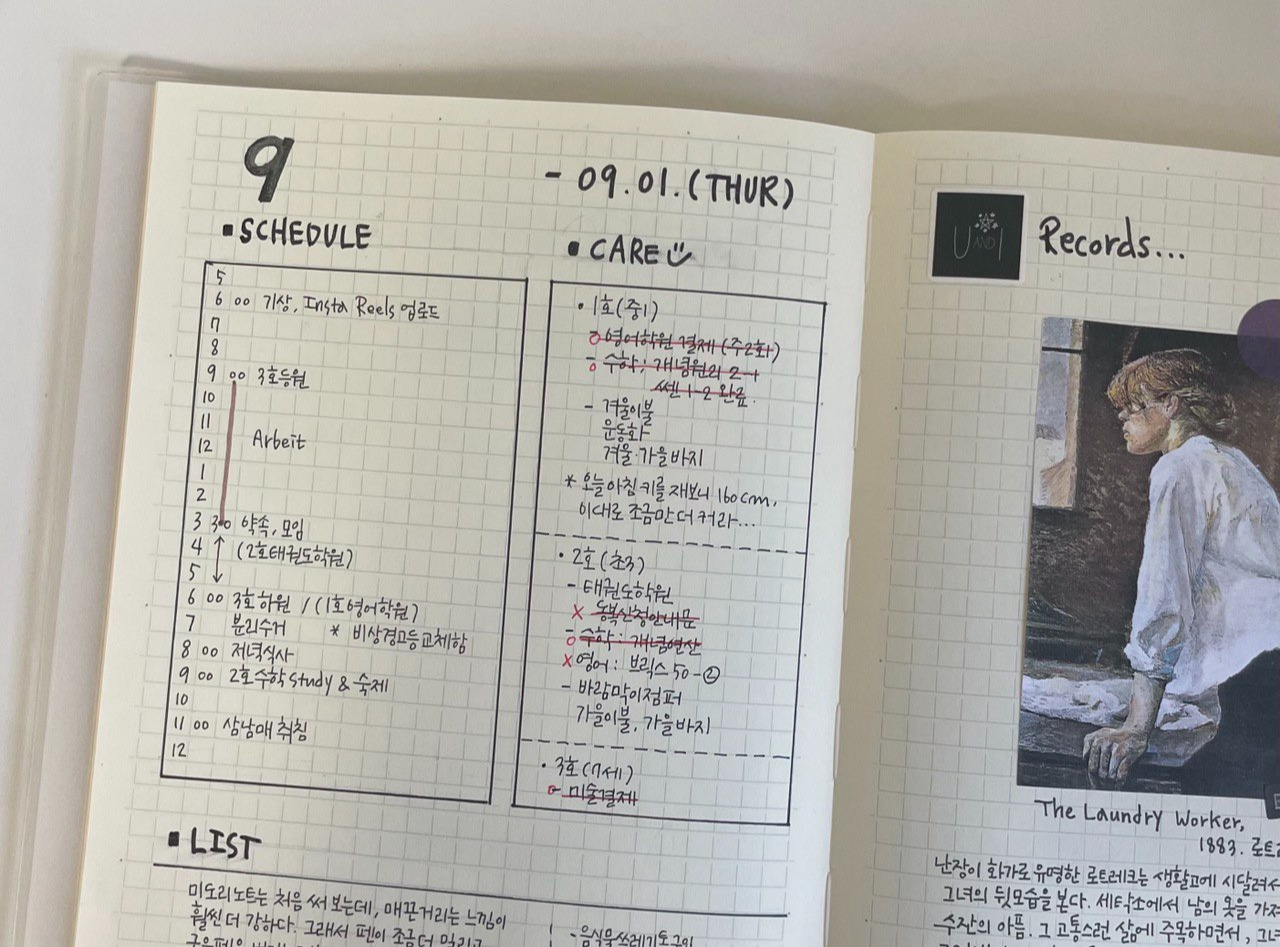 9
- 09.01.(THUR)
▪SCHEDULE
5
6 00 기상, Insta Reels 업로드
7
8
9 00 3호등원
10
11
12 Arbeit
1
2
3 30 약속, 모임
4 (2호태권도학원)
5
6 00 3호하원 / (1호영어학원)
7 분리수거 * 비상경고등교체함
8 00 저녁식사
9 00 2호수학 study & 숙제
10
11 00 삼남매 취침
12
▪CARE
• 1호(중1)
영어학원 결제 (주2회)
- 수학; 개념원리 2-1
쎈 1-2 완료.
- 겨울이불
운동화
겨울·가을바지
* 오늘아침 키를 재보니 160cm,
이대로 조금만 더 커라...
• 2호(초3)
- 태권도학원
x 동복신청안내문
- 수학: 개념연산
x 영어: 브릭스 50-②
- 바람막이점퍼
가을이불, 가을바지
• 3호(7세)
- 미술결제
▪LIST
미도리노트는 처음 써 보는데, 매끈거리는 느낌이
훨씬 더 강하다. 그래서 펜이 조금 더 밀리고
-음식물쓰레기
U AND I
Records...
The Laundry Worker,
1883. 로트
난장이 화가로 유명한 로트레크는 생활고에 시달려서
그녀의 뒷모습을 본다. 세탁소에서 남의 옷을
수잔의 아픔. 그 고통스런 삶에 주목하면서, 그녀